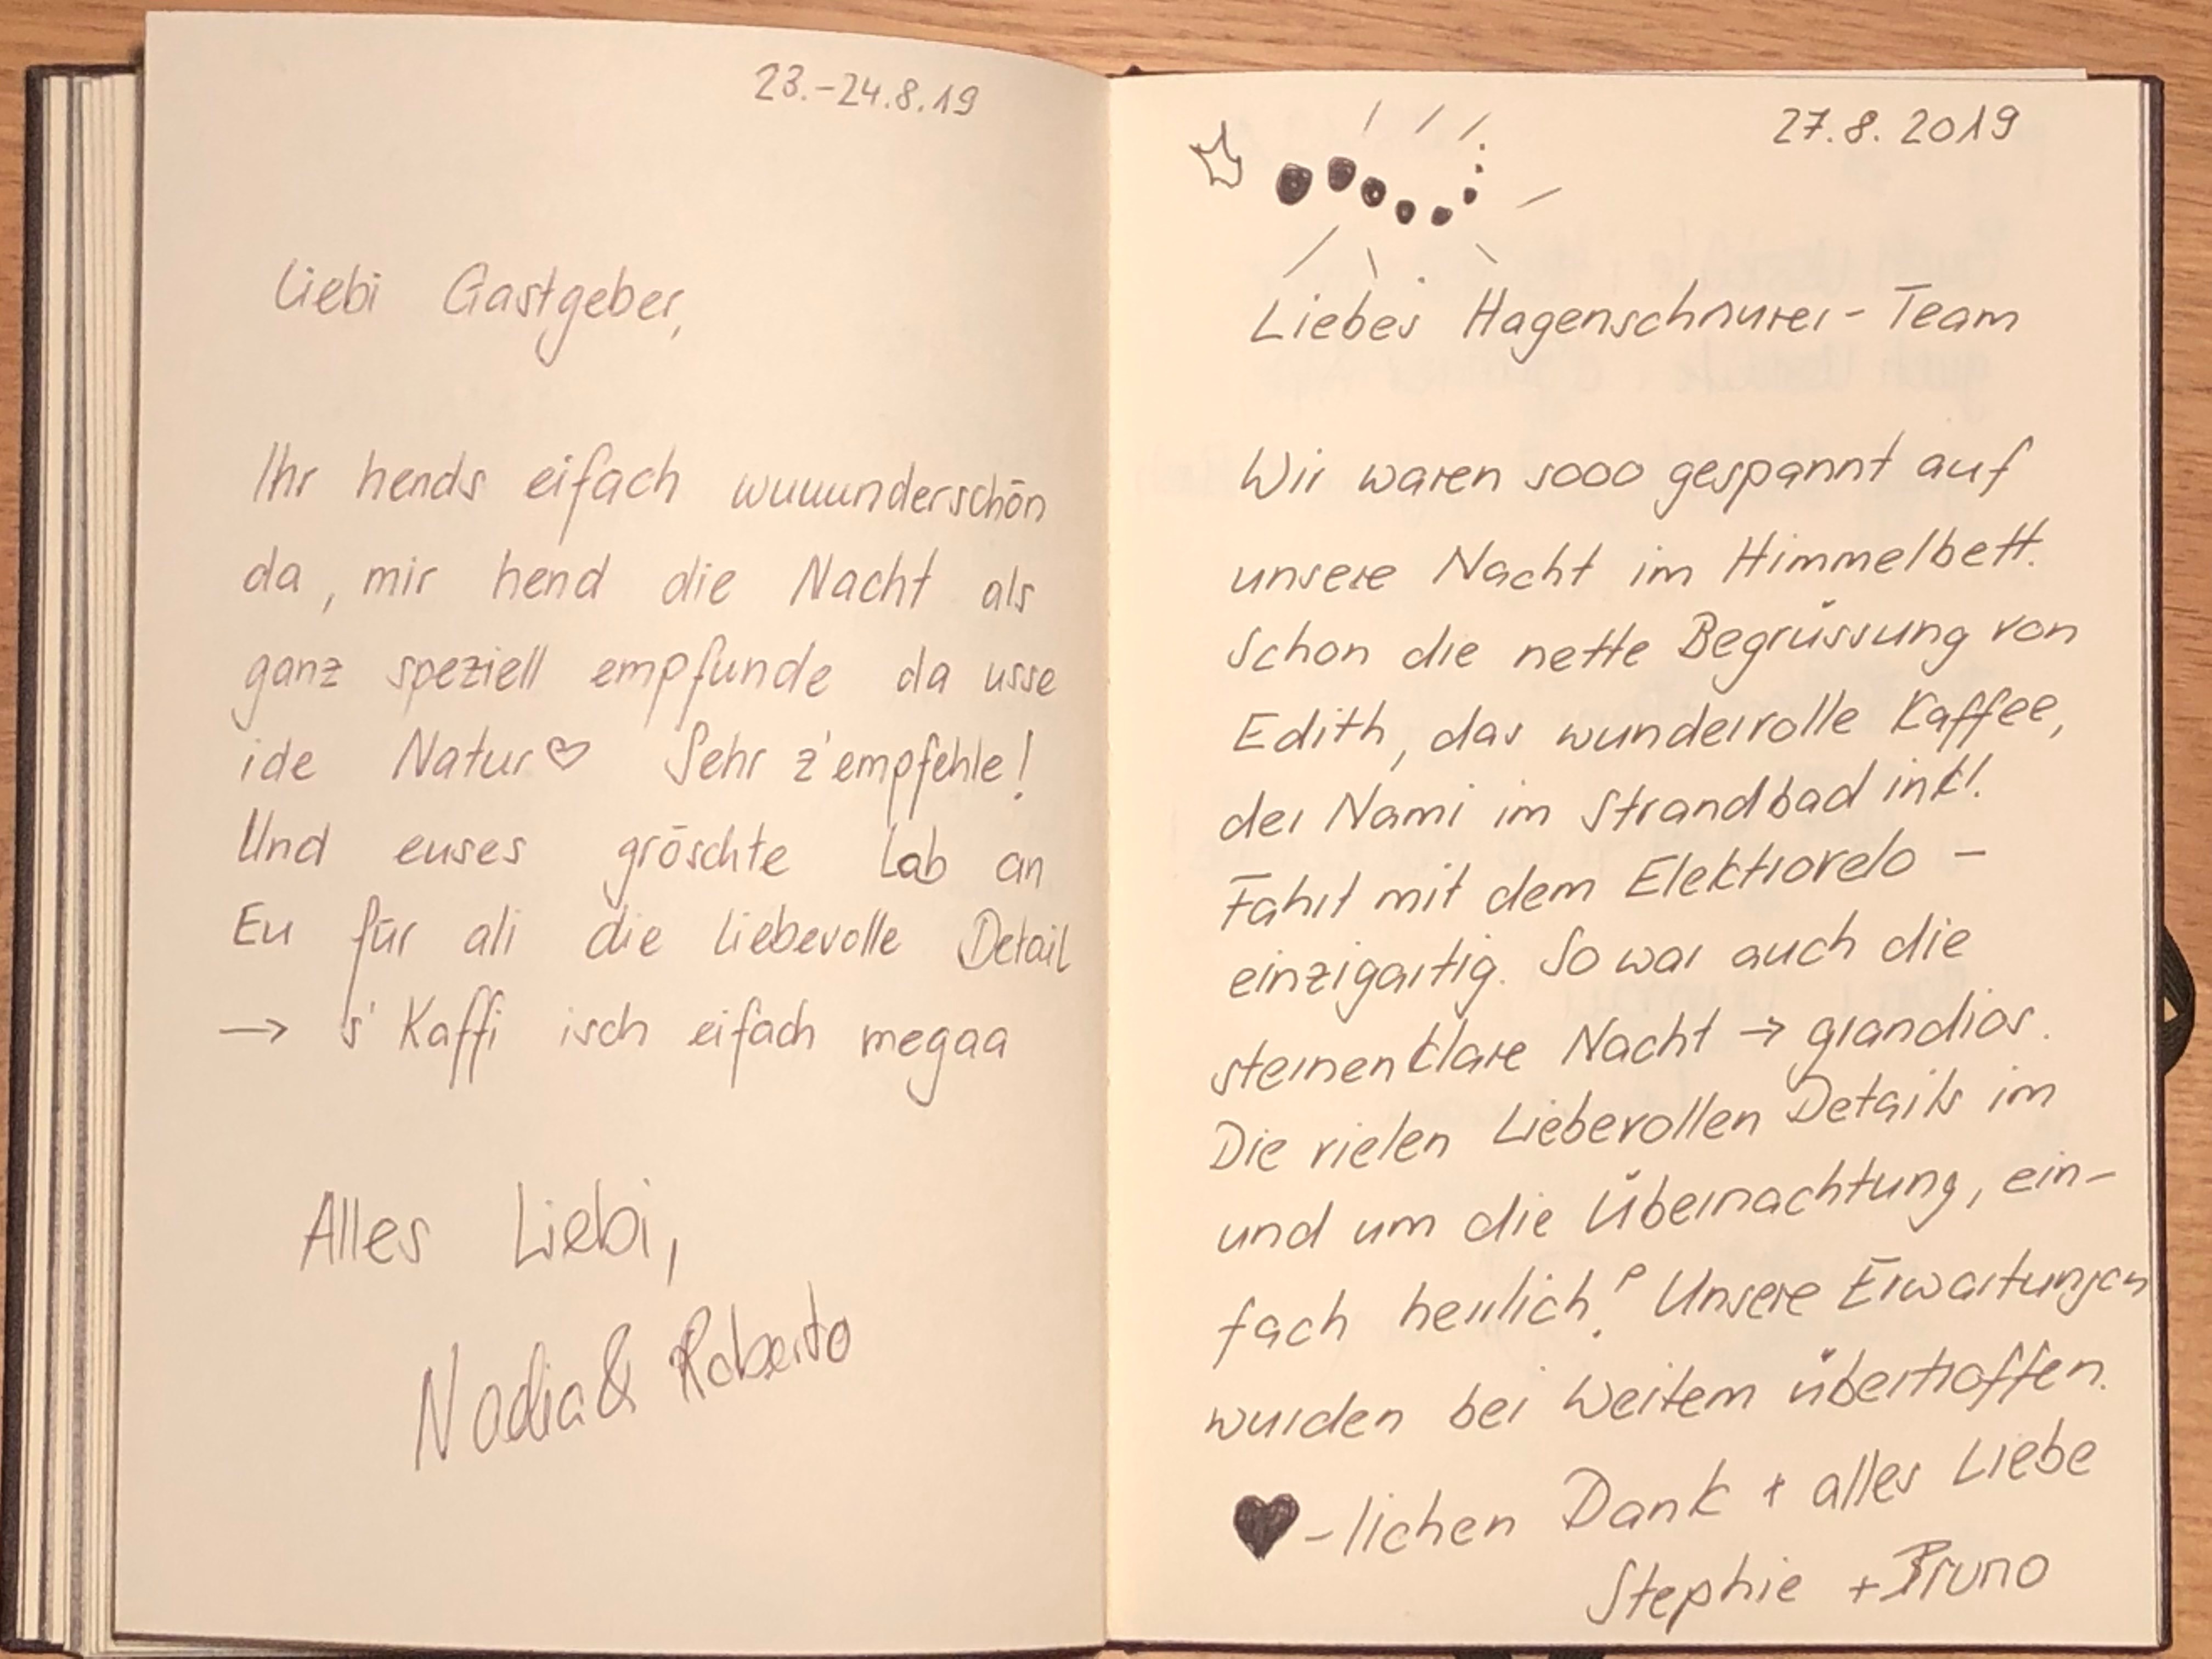 23.-24.8.19
Liebi Gastgeber,
Ihr hends eifach wuuunderschön
da, mir hend die Nacht als
ganz speziell empfunde da usse
ide Natur♡ Sehr z'empfehle!
Und euses gröschte Lob an
Eu für ali die liebevolle Detail
→ s' Kaffi isch eifach megaa
Alles Liebi,
Nadia & Roberto
27.8.2019
Liebes Hagenschnurer-Team
Wir waren sooo gespannt auf
unsere Nacht im Himmelbett.
Schon die nette Begrüssung von
Edith, das wundervolle Kaffee,
der Nami im Strandbad inkl.
Fahrt mit dem Elektrovelo –
einzigartig. So war auch die
sternenklare Nacht → grandios.
Die vielen Liebevollen Details im
und um die Übernachtung, ein-
fach herrlich! Unsere Erwartungen
wurden bei Weitem übertroffen.
♥-lichen Dank + alles Liebe
Stephie + Bruno